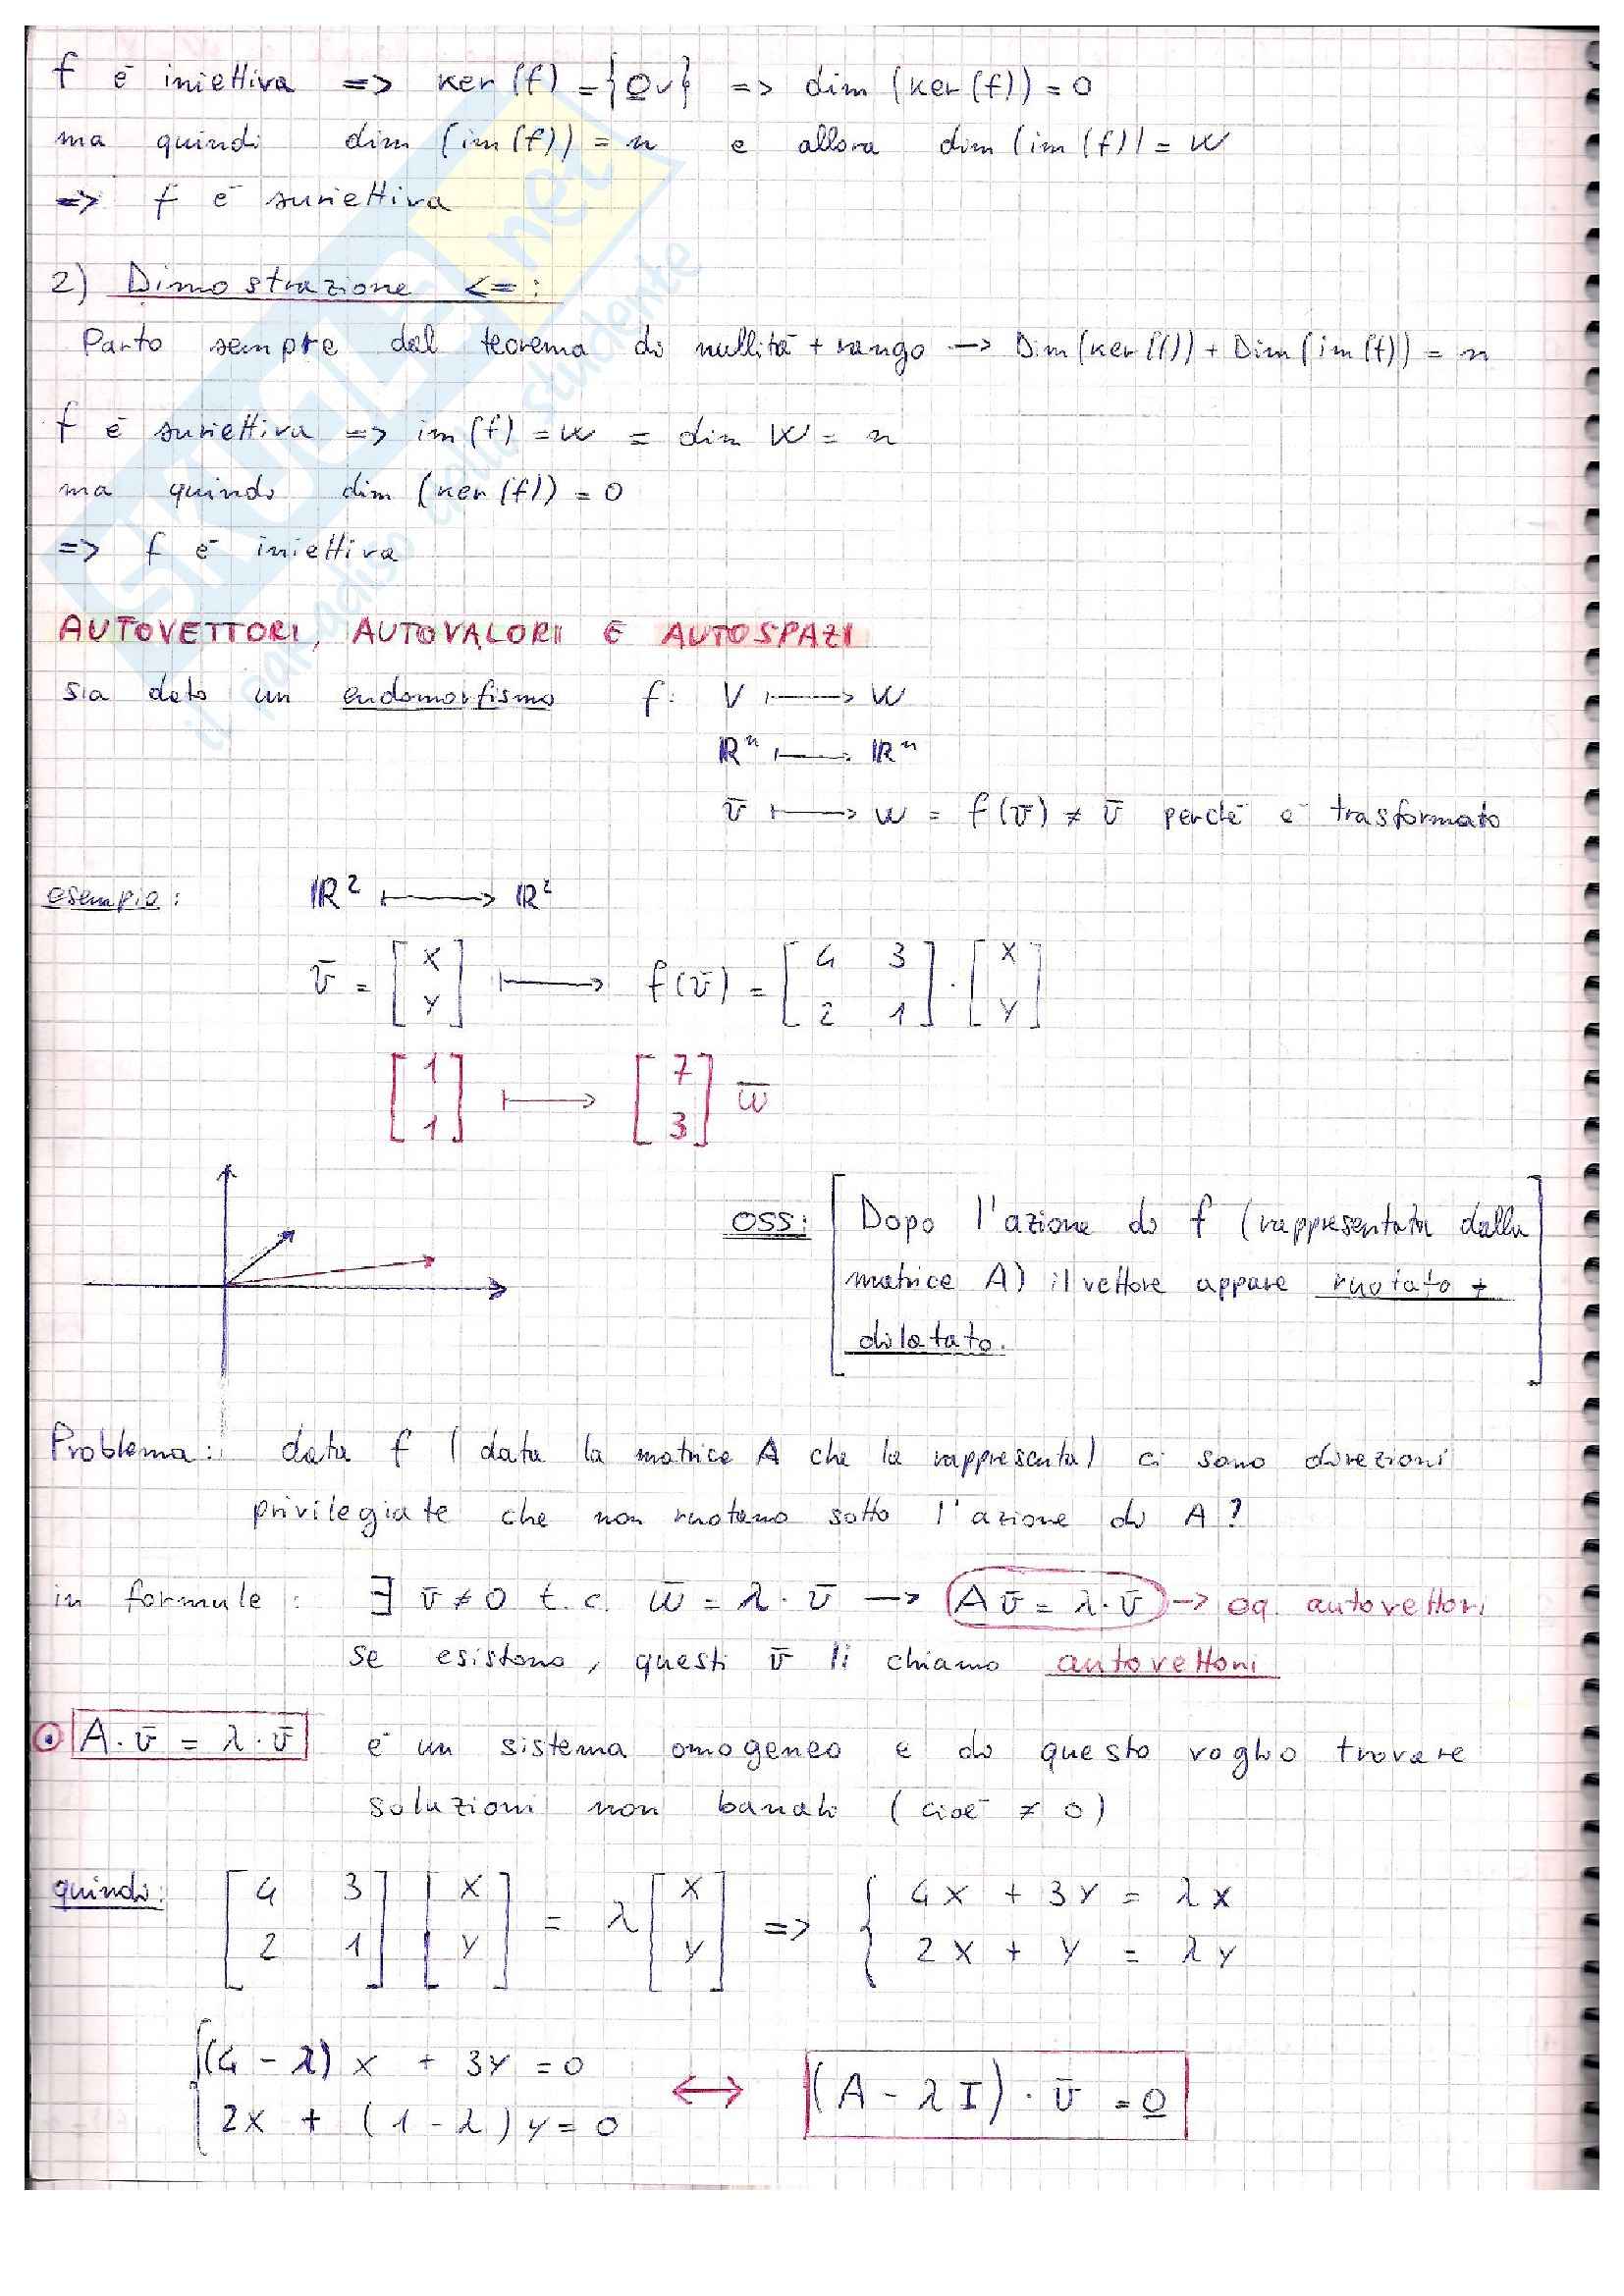 f è iniettiva => ker(f) = {0v} => dim (ker(f)) = 0
ma quindi dim (im(f)) = n e allora dim(im(f)) = W
=> f è suriettiva
2) Dimostrazione <= :
Parto sempre dal teorema di nullità + rango -> Dim(ker(f)) + Dim(im(f)) = n
f è suriettiva => im(f) = W = dim W = n
ma quindi dim (ker(f)) = 0
=> f è iniettiva
AUTOVETTORI, AUTOVALORI E AUTOSPAZI
sia dato un endomorfismo f: V ↦ W
ℝⁿ ↦ ℝⁿ
v̄ ↦ w = f(v̄) ≠ v̄ perchè è trasformato
esempio: ℝ² ↦ ℝ²
v̄ = [x; y] ↦ f(v̄) = [4 3; 2 1] · [x; y]
[1; 1] ↦ [7; 3] w̄
OSS: [Dopo l'azione di f (rappresentata dalla
matrice A) il vettore appare ruotato +
dilatato.]
Problema: data f (data la matrice A che la rappresenta) ci sono direzioni
privilegiate che non ruotano sotto l'azione di A?
in formule: ∃ v̄ ≠ 0 t.c. w̄ = λ · v̄ -> Av̄ = λ·v̄ -> eq. autovettori
se esistono, questi v̄ li chiamo autovettori
⊙ A·v̄ = λ·v̄ è un sistema omogeneo e di questo voglio trovare
soluzioni non banali (cioè ≠ 0)
quindi: [4 3; 2 1] [x; y] = λ [x; y] => { 4x + 3y = λx
2x + y = λy
{ (4 - λ) x + 3y = 0
2x + (1 - λ) y = 0 ↔ (A - λI) · v̄ = 0
SKUOLA.net
il paradiso dello studente